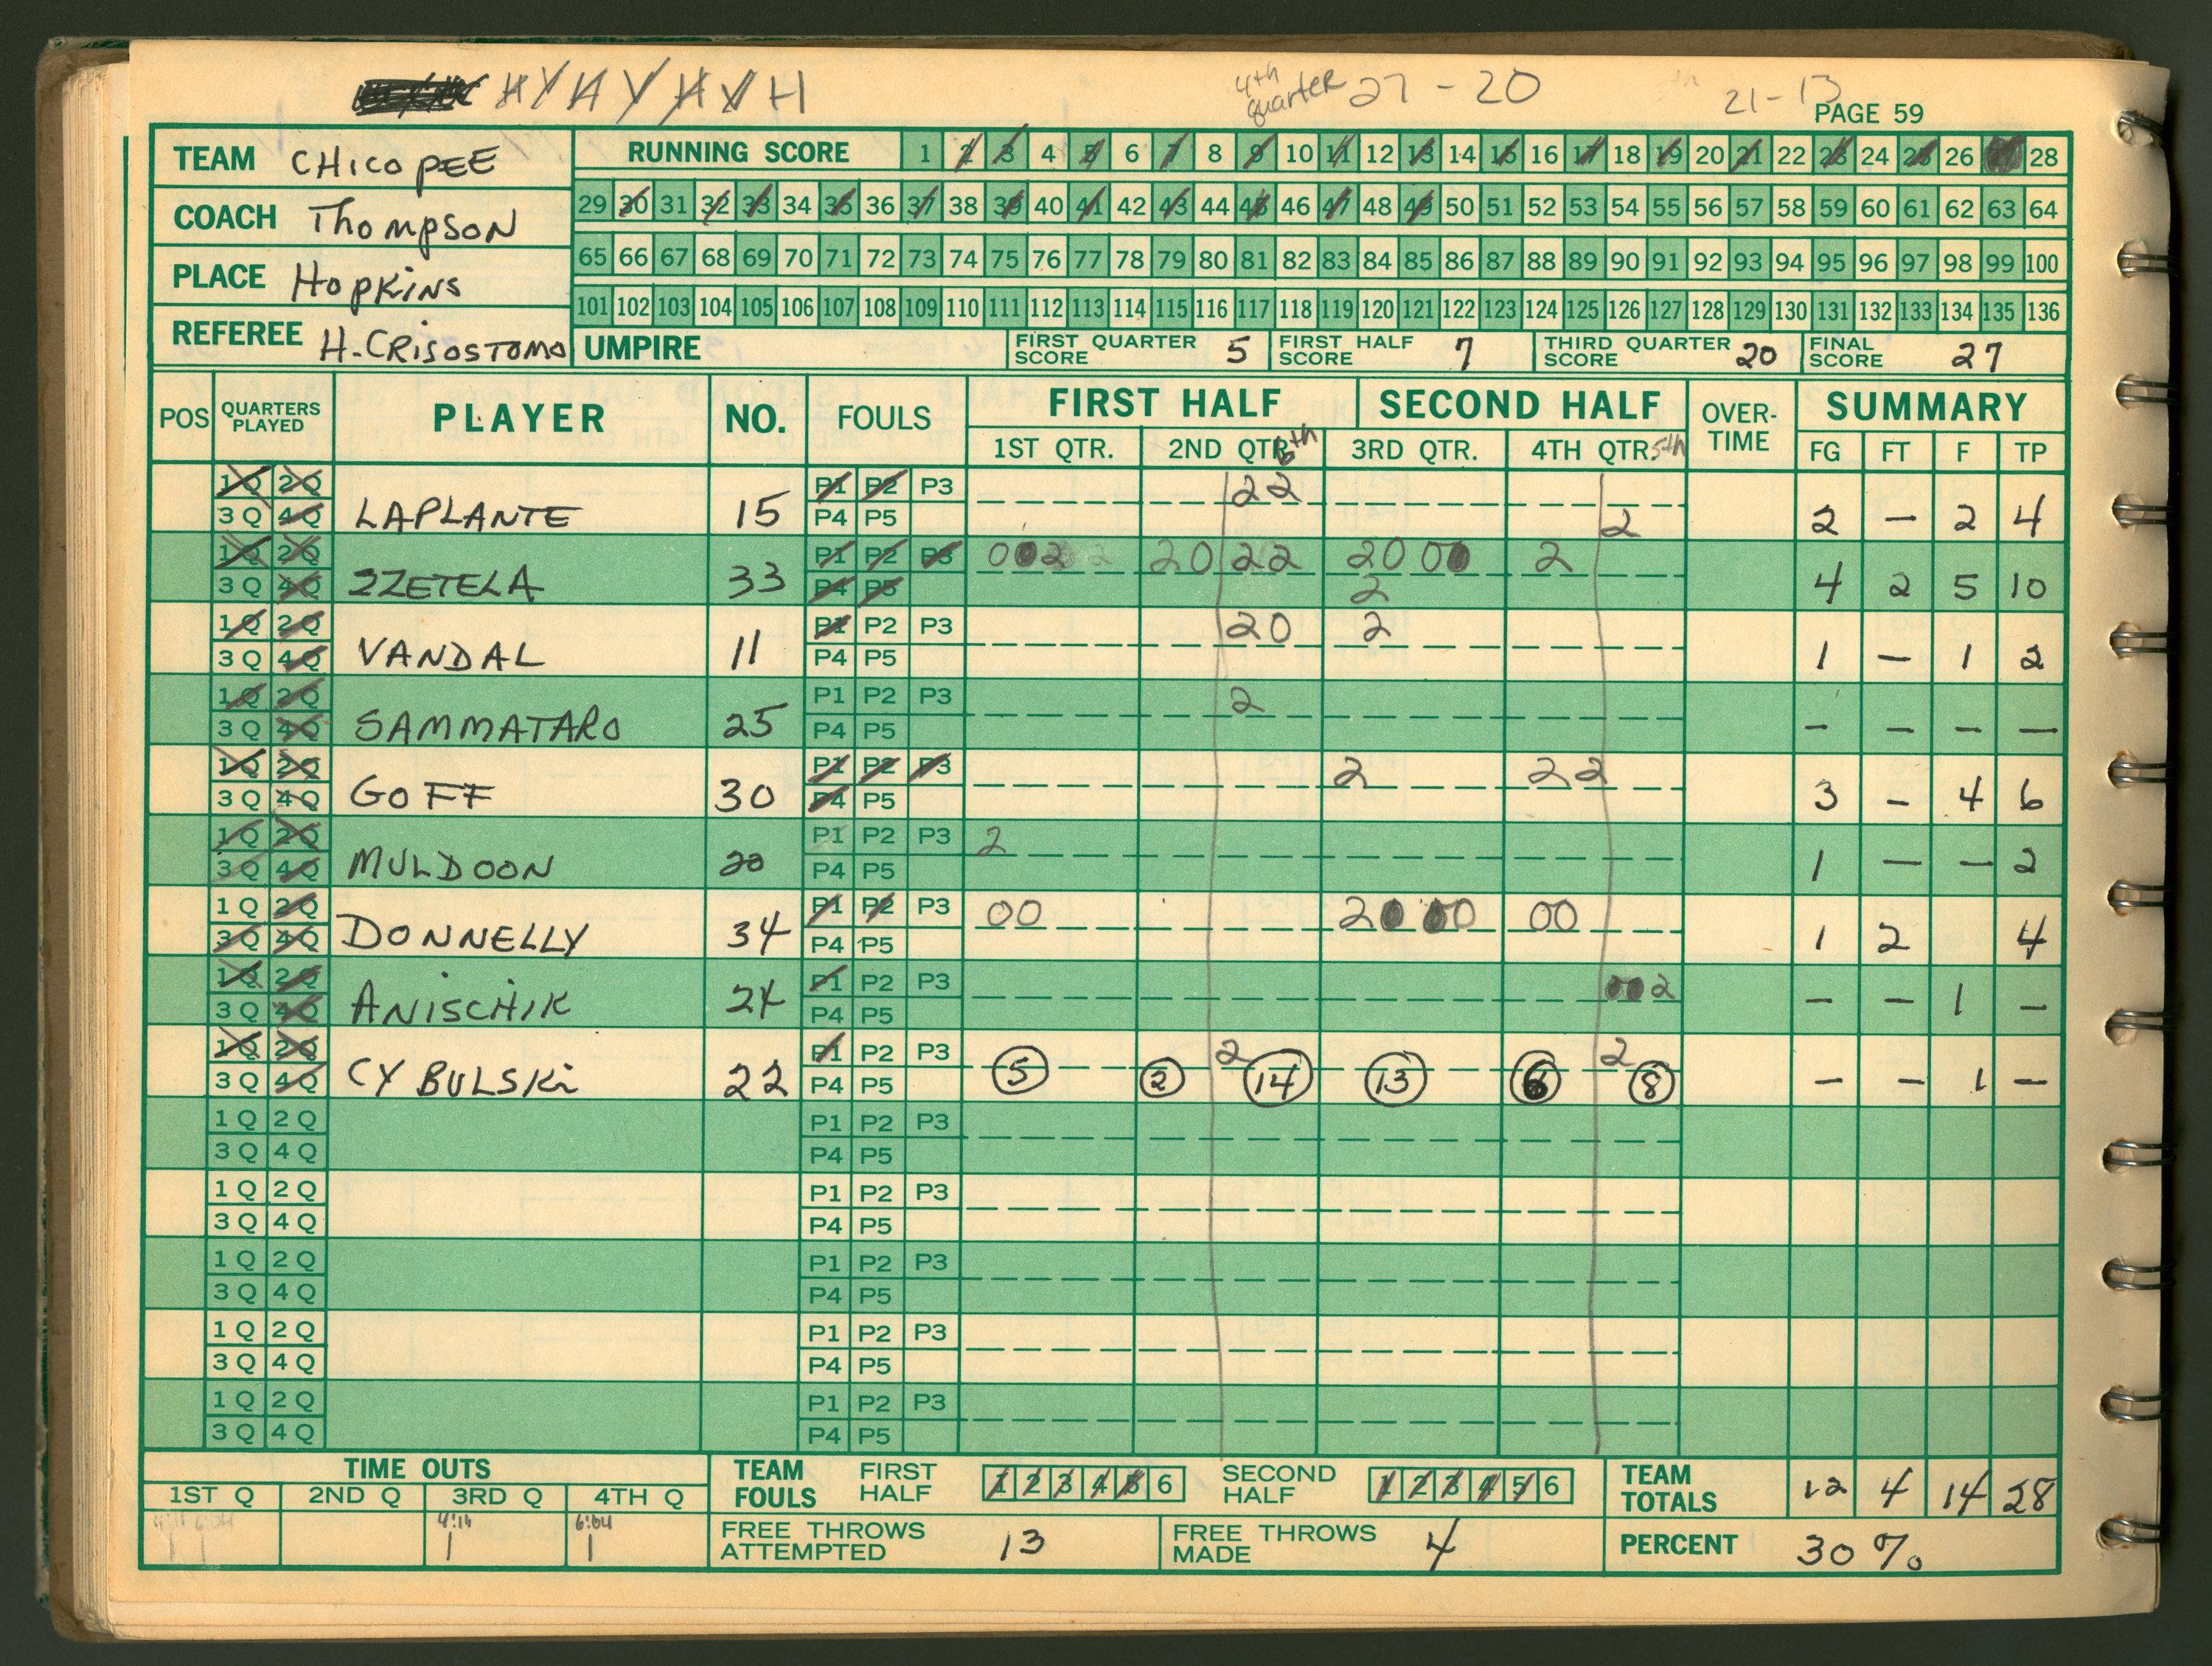 H Y H Y H Y H
4th quarter 27 - 20
21 - 13
PAGE 59
TEAM CHICOPEE
COACH Thompson
PLACE Hopkins
REFEREE H. CRISOSTOMO
RUNNING SCORE 1 2 3 4 5 6 7 8 9 10 11 12 13 14 15 16 17 18 19 20 21 22 23 24 25 26 27 28
29 30 31 32 33 34 35 36 37 38 39 40 41 42 43 44 45 46 47 48 49 50 51 52 53 54 55 56 57 58 59 60 61 62 63 64
65 66 67 68 69 70 71 72 73 74 75 76 77 78 79 80 81 82 83 84 85 86 87 88 89 90 91 92 93 94 95 96 97 98 99 100
101 102 103 104 105 106 107 108 109 110 111 112 113 114 115 116 117 118 119 120 121 122 123 124 125 126 127 128 129 130 131 132 133 134 135 136
UMPIRE FIRST QUARTER SCORE 5 FIRST HALF SCORE 7 THIRD QUARTER SCORE 20 FINAL SCORE 27
POS QUARTERS PLAYED PLAYER NO. FOULS FIRST HALF SECOND HALF OVER-TIME SUMMARY
1ST QTR. 2ND QTR. 6th 3RD QTR. 4TH QTR. 5th FG FT F TP
1Q 2Q P1 P2 P3 2 2
3Q 4Q LAPLANTE 15 P4 P5 2 2 – 2 4
1Q 2Q P1 P2 P3 0 0 2 2 2 0 2 2 2 0 0 0 2
3Q 4Q SZETELA 33 P4 P5 2 4 2 5 10
1Q 2Q P1 P2 P3 2 0 2
3Q 4Q VANDAL 11 P4 P5 1 – 1 2
1Q 2Q P1 P2 P3 2
3Q 4Q SAMMATARO 25 P4 P5 – – – –
1Q 2Q P1 P2 P3 2 2 2
3Q 4Q GOFF 30 P4 P5 3 – 4 6
1Q 2Q P1 P2 P3 2
3Q 4Q MULDOON 20 P4 P5 1 – – 2
1Q 2Q P1 P2 P3 0 0 2 0 0 0 0 0
3Q 4Q DONNELLY 34 P4 P5 1 2 4
1Q 2Q P1 P2 P3 0 0 2
3Q 4Q ANISCHIK 24 P4 P5 – – 1 –
1Q 2Q P1 P2 P3 2 2
3Q 4Q CYBULSKI 22 P4 P5 5 2 14 13 6 8 – – 1 –
1Q 2Q P1 P2 P3
3Q 4Q P4 P5
1Q 2Q P1 P2 P3
3Q 4Q P4 P5
1Q 2Q P1 P2 P3
3Q 4Q P4 P5
1Q 2Q P1 P2 P3
3Q 4Q P4 P5
1Q 2Q P1 P2 P3
3Q 4Q P4 P5
TIME OUTS
1ST Q 2ND Q 3RD Q 4TH Q
4:14 6:04
TEAM FOULS FIRST HALF 1 2 3 4 5 6 SECOND HALF 1 2 3 4 5 6
TEAM TOTALS 12 4 14 28
FREE THROWS ATTEMPTED 13 FREE THROWS MADE 4 PERCENT 30%